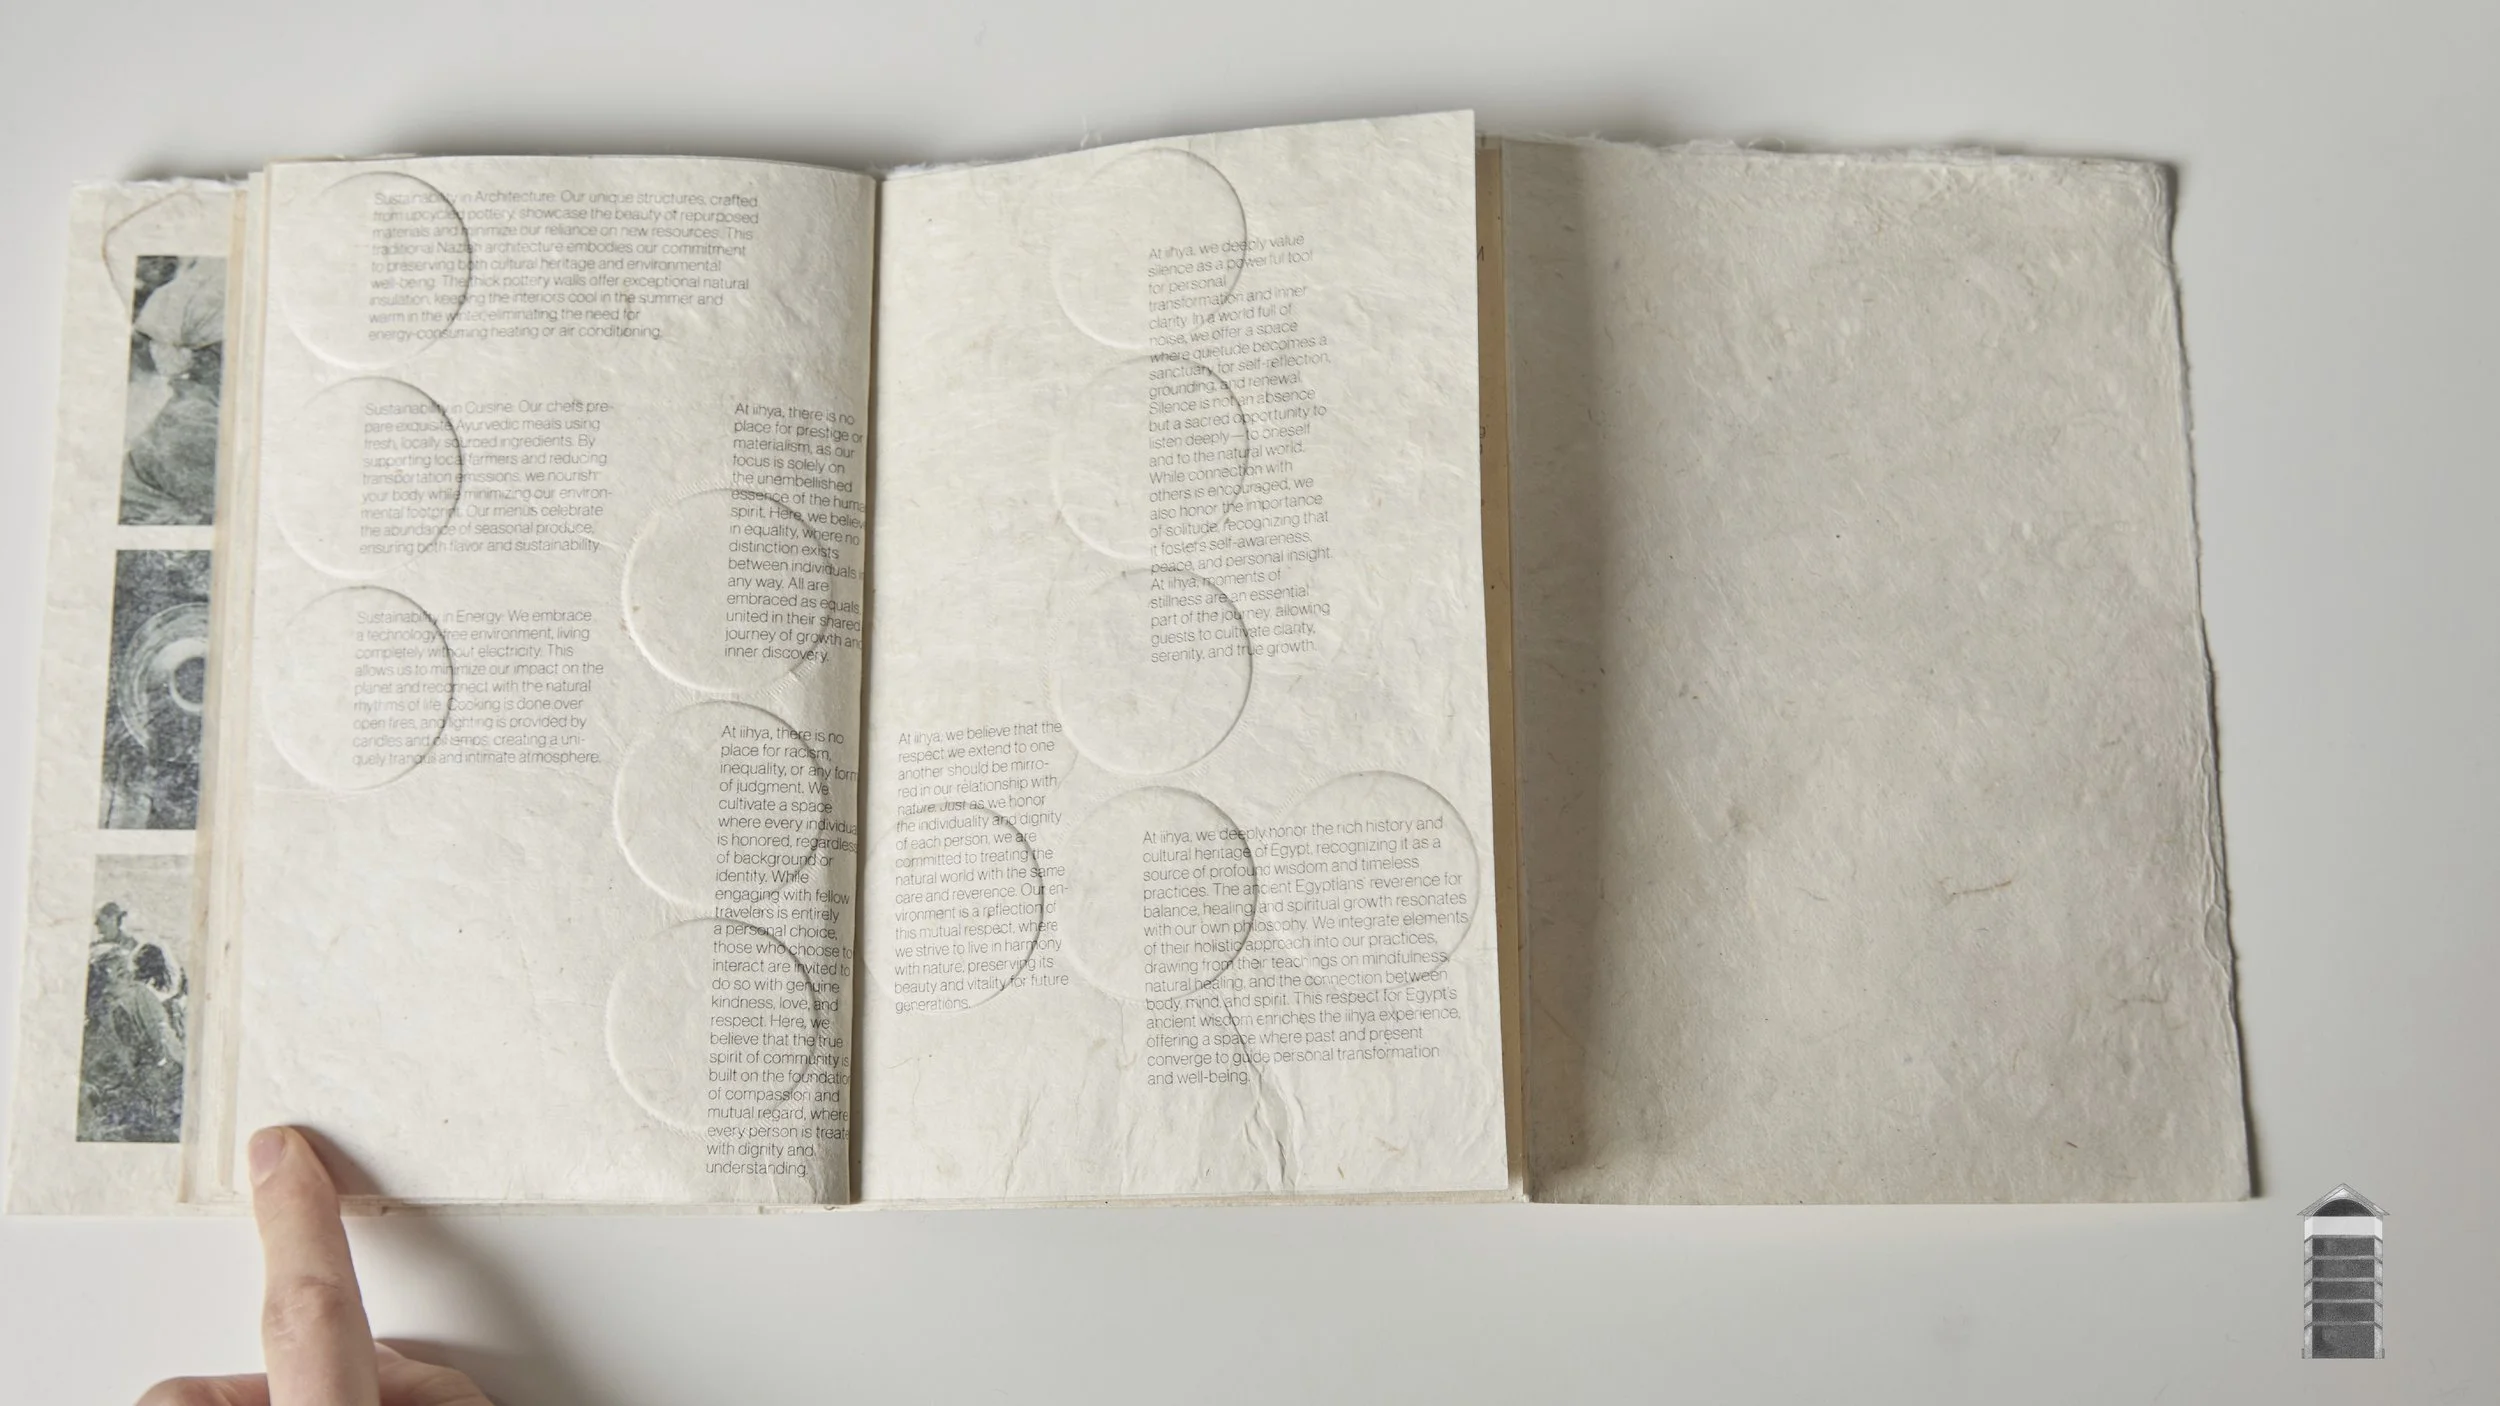 Sustainability in Architecture: Our unique structures, crafted
from upcycled pottery, showcase the beauty of repurposed
materials and minimize our reliance on new resources. This
traditional Nazlah architecture embodies our commitment
to preserving both cultural heritage and environmental
well-being. The thick pottery walls offer exceptional natural
insulation, keeping the interiors cool in the summer and
warm in the winter, eliminating the need for
energy-consuming heating or air conditioning.
Sustainability in Cuisine: Our chefs pre-
pare exquisite Ayurvedic meals using
fresh, locally sourced ingredients. By
supporting local farmers and reducing
transportation emissions, we nourish
your body while minimizing our environ-
mental footprint. Our menus celebrate
the abundance of seasonal produce,
ensuring both flavor and sustainability.
Sustainability in Energy: We embrace
a technology-free environment, living
completely without electricity. This
allows us to minimize our impact on the
planet and reconnect with the natural
rhythms of life. Cooking is done over
open fires, and lighting is provided by
candles and oil lamps, creating a uni-
quely tranquil and intimate atmosphere.
At iihya, there is no
place for prestige or
materialism, as our
focus is solely on
the unembellished
essence of the human
spirit. Here, we believe
in equality, where no
distinction exists
between individuals in
any way. All are
embraced as equals,
united in their shared
journey of growth and
inner discovery.
At iihya, there is no
place for racism,
inequality, or any form
of judgment. We
cultivate a space
where every individual
is honored, regardless
of background or
identity. While
engaging with fellow
travelers is entirely
a personal choice,
those who choose to
interact are invited to
do so with genuine
kindness, love, and
respect. Here, we
believe that the true
spirit of community is
built on the foundation
of compassion and
mutual regard, where
every person is treated
with dignity and
understanding.
At iihya, we believe that the
respect we extend to one
another should be mirro-
red in our relationship with
nature. Just as we honor
the individuality and dignity
of each person, we are
committed to treating the
natural world with the same
care and reverence. Our en-
vironment is a reflection of
this mutual respect, where
we strive to live in harmony
with nature, preserving its
beauty and vitality for future
generations.
At iihya, we deeply value
silence as a powerful tool
for personal
transformation and inner
clarity. In a world full of
noise, we offer a space
where quietude becomes a
sanctuary for self-reflection,
grounding, and renewal.
Silence is not an absence
but a sacred opportunity to
listen deeply—to oneself
and to the natural world.
While connection with
others is encouraged, we
also honor the importance
of solitude, recognizing that
it fosters self-awareness,
peace, and personal insight.
At iihya, moments of
stillness are an essential
part of the journey, allowing
guests to cultivate clarity,
serenity, and true growth.
At iihya, we deeply honor the rich history and
cultural heritage of Egypt, recognizing it as a
source of profound wisdom and timeless
practices. The ancient Egyptians' reverence for
balance, healing, and spiritual growth resonates
with our own philosophy. We integrate elements
of their holistic approach into our practices,
drawing from their teachings on mindfulness,
natural healing, and the connection between
body, mind, and spirit. This respect for Egypt's
ancient wisdom enriches the iihya experience,
offering a space where past and present
converge to guide personal transformation
and well-being.